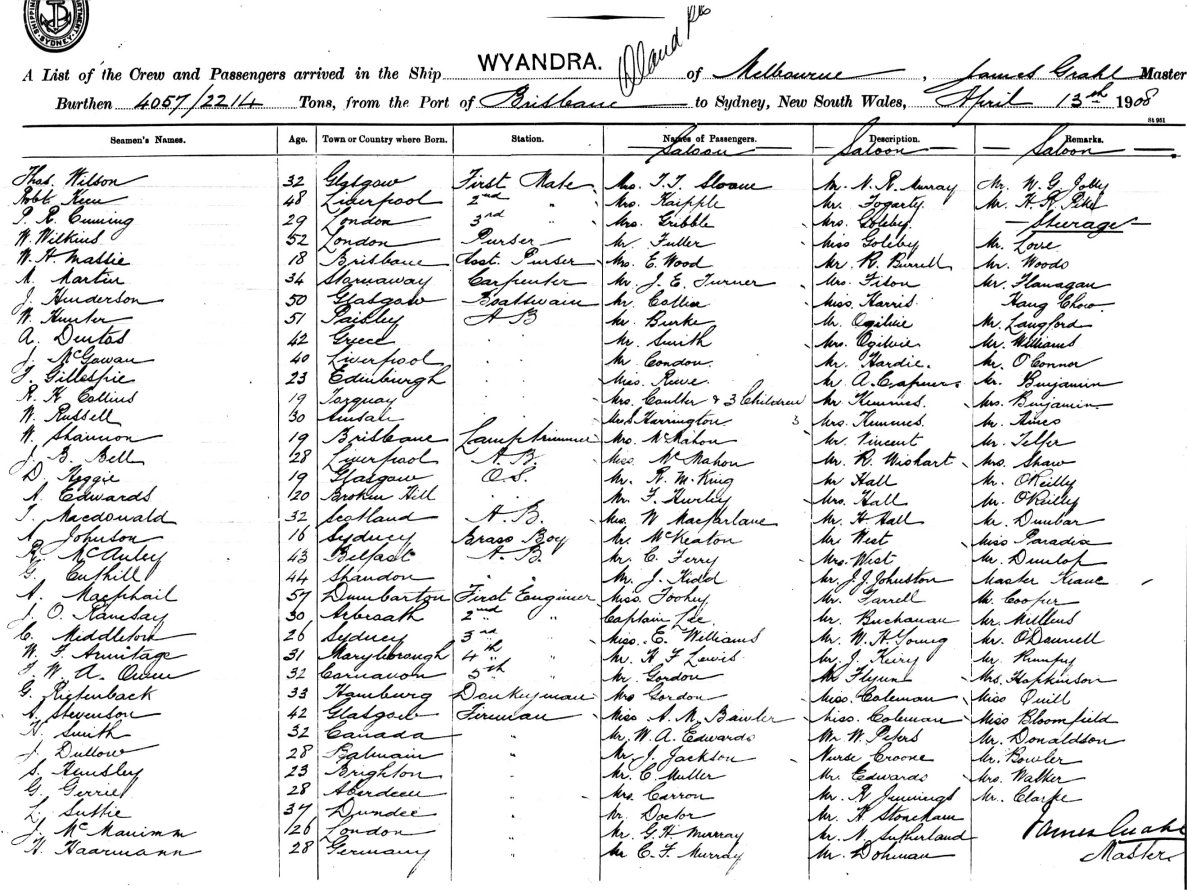 SHIPPING DEPARTMENT SYDNEY
WYANDRA.
A List of the Crew and Passengers arrived in the Ship of Melbourne, James Grahl Master
Burthen 4057/2214 Tons, from the Port of Brisbane to Sydney, New South Wales, April 13th 1908
St 951
Seamen's Names. Age. Town or Country where Born. Station. Names of Passengers. Description. Remarks.
Saloon Saloon Saloon
Thos. Wilson 32 Glasgow First Mate Mrs. T. T. Sloane Mr. N. R. Murray Mr. W. G. Jolly
Robt Keen 48 Liverpool 2nd " Mrs. Kaipple Mr. Fogarty Mr. H. R. Pike
P. R. Cunning 29 London 3rd " Mrs. Gribble Mrs. Goleby. Steerage
W. Wilkins 52 London Purser Mr. Fuller Miss Goleby Mr. Love
W. H. Massie 18 Brisbane Asst. Purser Mrs. E. Wood Mr. R. Burrell Mr. Woods
M. Martin 34 Stornaway Carpenter Mr. J. E. Turner Mrs. Fison Mr. Flanagan
J. Henderson 50 Glasgow Boatswain Mr. Collier Miss. Harris Kang Chow
W. Hunter 51 Paisley A B Mr. Burke Mr. Ogilvie Mr. Langford
A. Dentas 42 Greece Mr. Smith Mrs. Ogilvie Mr. Williams
J. McGowan 40 Liverpool Mr. Condon. Mr. Hardie. Mr. O'Connor
J. Gillespie 23 Edinburgh Miss. Reeve Mr A. Capners Mr. Benjamin
R. H. Collins 19 Torquay Mrs. Coulter & 3 Children Mr Kemmes. Mrs. Benjamin.
W. Russell 30 Mrs S Harrington 3 Mrs. Kemmes. Mr. Hines
W. Shannon 19 Brisbane Lamptrimmer Mrs. McMahon Mr. Vincent Mr. Telfer
J. B. Bell 28 Liverpool A. B. Miss. McMahon Mr. R. Wishart Mrs. Shaw
D. Keggie 19 Glasgow O.S. Mr. R. M. King Mr Hall Mr. O'Reilly
A. Edwards 20 Broken Hill Mr. F. Hurley Mrs. Hall Mr. O'Reilly
T. Macdonald 32 Scotland A. B. Mrs. W Macfarlane Mr. H Hall Mr. Dunbar
A. Johnson 16 Sydney Brass Boy Mr. McKeaton Mr. West Miss Paradia
R. McAuley 43 Belfast A. B. Mr. C. Ferry Mrs. West Mr. Dunlop
G. Cuthill 44 Shandon Mr. J. Kidd Mr. J. J. Johnston Master Keane
A. Macphail 57 Dumbarton First Engineer Miss. Toohey Mr. Farrell Mr. Cooper
J. O. Ramsay 30 Arbroath 2nd " Captain Lee Mr. Buchanan Mr. Millens
C. Middleton 26 Sydney 3rd " Miss. E. Williams Mr. W. H. Young Mr. O'Donnell
W. F. Armitage 31 Maryborough 4th " Mr. H F Lewis. Mr. J. Keiry Mr. Rumpy
J. W. A. Owen 32 Carnavon 5th " Mr. Gordon Mr Flynn Mrs. Hopkinson
G. Riefenback 33 Hamburg Donkeyman Mrs Gordon Miss. Coleman Miss Quill
A. Stevenson 42 Glasgow Fireman Miss A. M. Bawler Miss. Coleman Miss Bloomfield
H. Smith 32 Canada " Mr. W. A. Edwards Mr W. Peters Mr. Donaldson
J. Dullow 28 Balmain " Mr. J. Jackson Nurse Croone Mr. Bowler
S. Hemsley 23 Brighton " Mr. C. Muller Mr. Edwards Mrs. Walker
G. Gerrie 28 Aberdeen " Mrs. Carron Mr. R Jennings Mr. Clarke
L. Suttie 37 Dundee " Mr. Doctor Mr. H Stoneham James Grahl
J. McManimm 26 London " Mr. G. H Murray Mr. N. Sutherland Master
H. Haarmann 28 Germany " Mr C. F. Murray Mr. Dohman